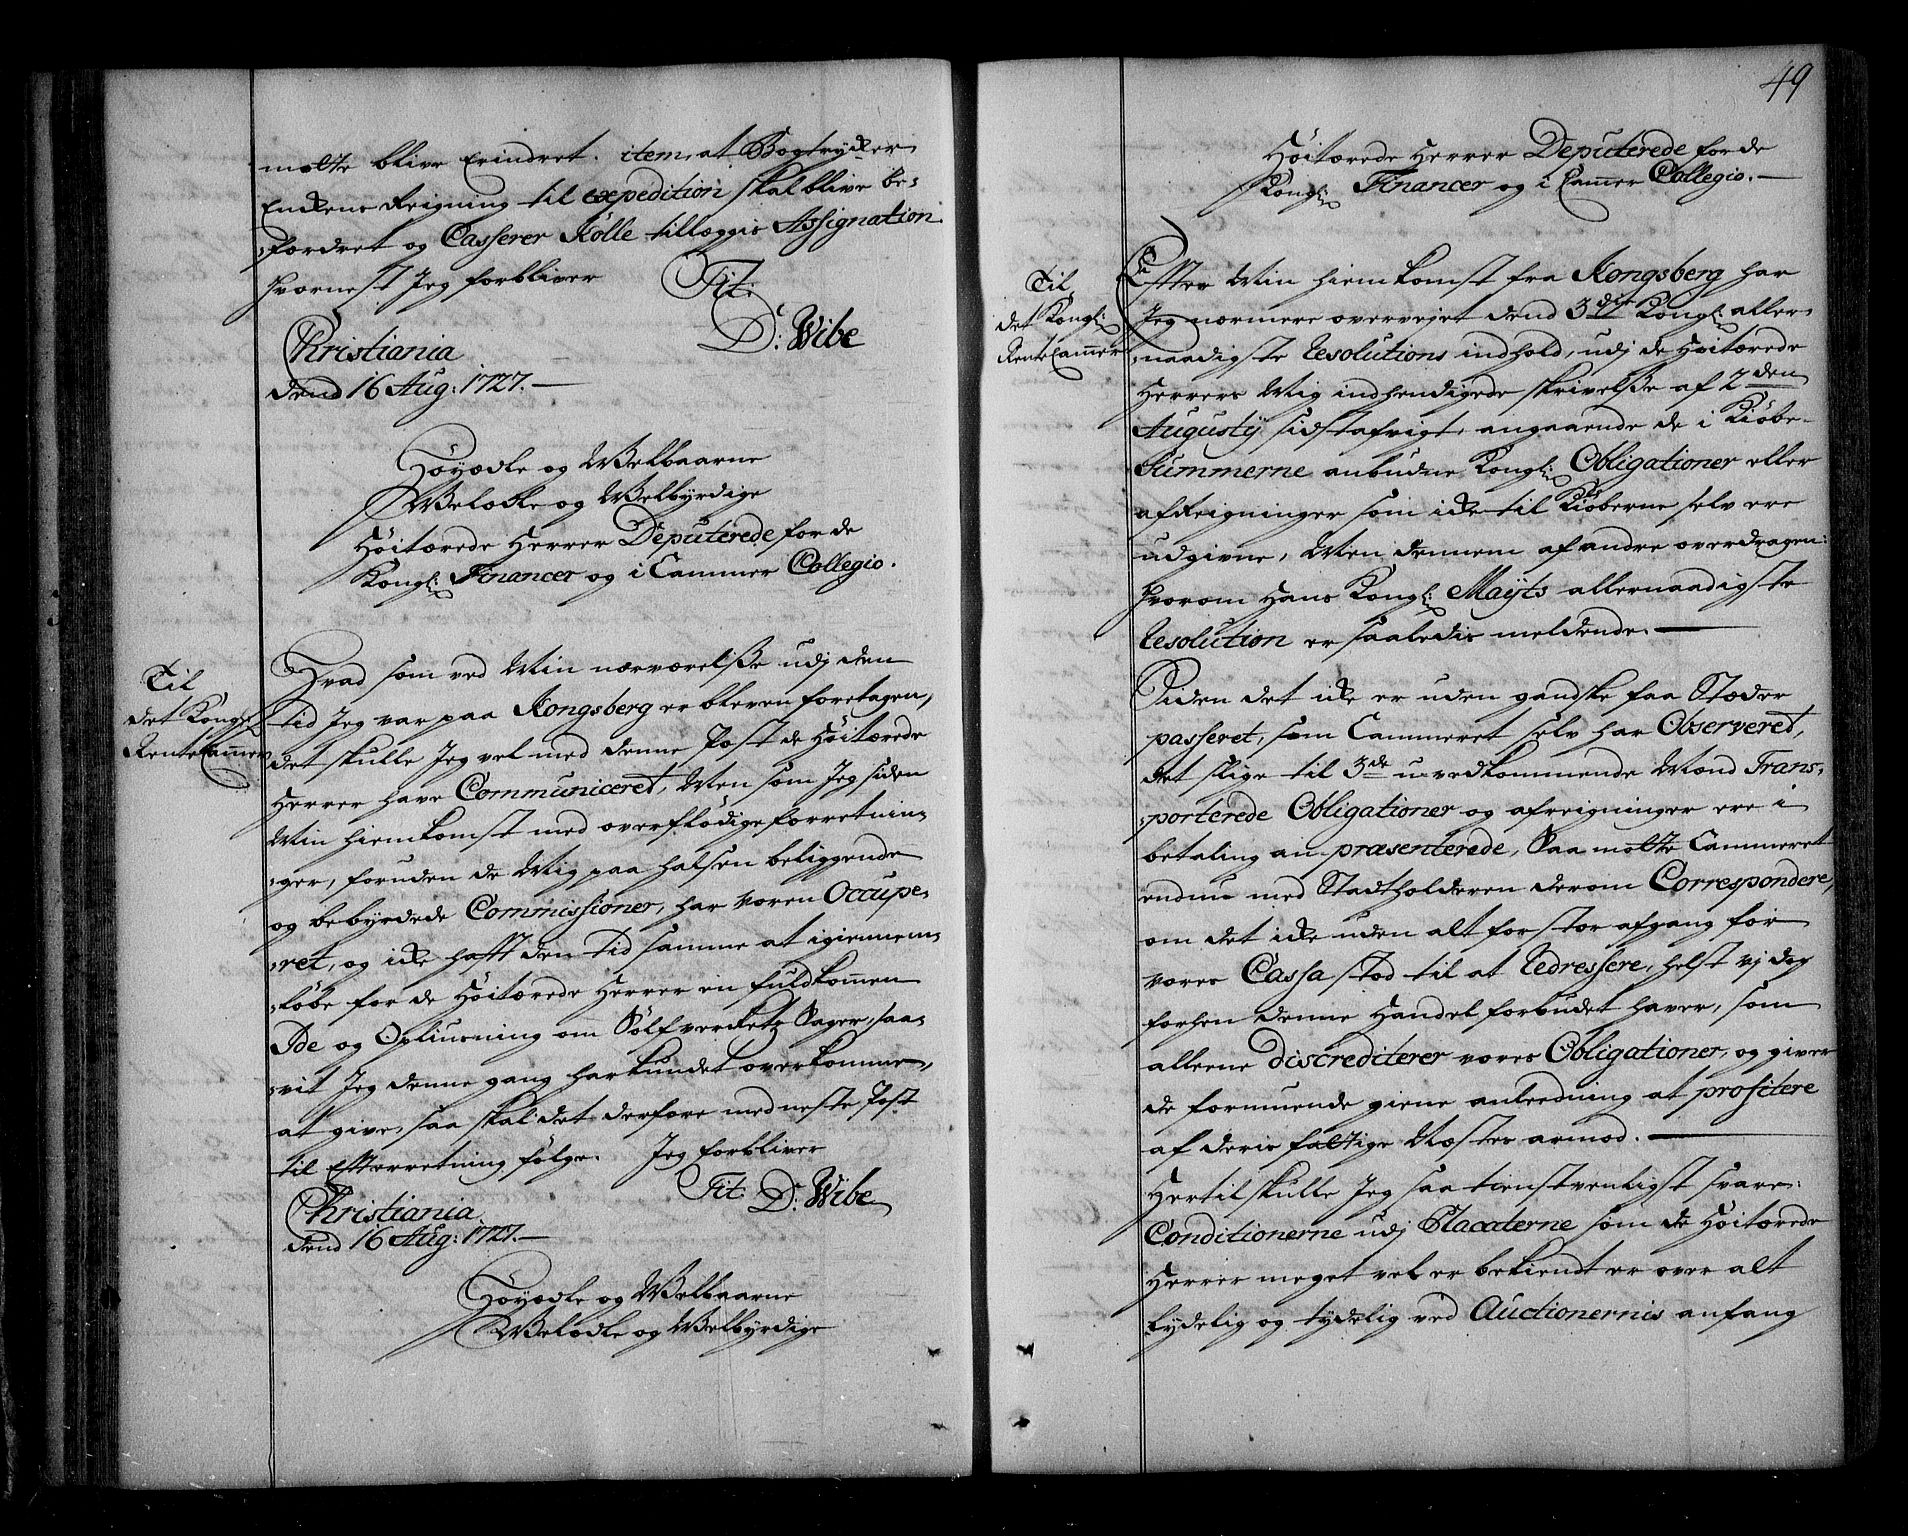 motte blive Erindret. item, at Bogtrycker
Enckens Reigning til expedition skal blive be-
fordret og Casserer Kølle tillæggis Assignation.
hvornest Jeg forbliver Tit:
D: Wibe
Christiania
dend 16 Aug: 1727.
Höyædle og Welbaarne
Welædle og Welbyrdige
Höitærede Herrer Deputerede for de
Kongl: Financer og i Cammer Collegio.
Til
det Kongl:
Rente Cammer
Hvad som ved Min nærværelsse udj den
tid Jeg var paa Kongsberg er bleven foretagen,
det skulle Jeg vel med denne Post de Höitærede
Herrer have Communiceret, Men som Jeg siden
Min hiemkomst med overflödige forretnin-
ger, foruden de Mig paa halsen beliggende
og bebyrdede Commissioner, har voren Occupe-
ret, og icke hafft den tid samme at igiennem-
löbe for de Höitærede Herrer en fuldkommen
Ide og Opliusning om Sölfverkets Sager, saa-
vit Jeg denne gang har kundet overkomme,
at give, saa skal det derfore med neste Post
til Efterretning fölge. Jeg forbliver
Tit: D: Wibe
Christiania
dend 16 Aug: 1727.
Höyædle og Welbaarne
Welædle og Welbyrdige
49
Höitærede Herrer Deputerede for de
Kongl: Financer og i Cammer Collegio.
Til
det Kongl:
Rente Cammer
Effter Min hiemkomst fra Kongsberg har
Jeg nærmere overvejet dend 3die Kongl: aller-
naadigste Resolutions indhold, udj de Höitærede
Herrers Mig indhendigede skrivelsse af 2den
Augustij sidstafvigt, angaaende de i Kiöbe-
Summerne anbudne Kongl: Obligationer eller
afReigninger som icke til Kiöberne selv ere
udgivne, Men dennem af andre overdragen:
hvorom Hans Kongl: Mayts allernaadigste
Resolution er saaledis meldende.
Siden det icke er uden gandske faa Stæder
passeret, som Cammeret selv har Observeret,
det slige til 3de uvedkommende Mænd Trans-
porterede Obligationer og afreigninger ere i
betaling an præsenterede, Saa motte Cammeret
endnu med Stadtholderen derom Correspondere,
om det icke uden alt for stor afgang for
vores Cassa stod til at Redressere, helst vj dog
forhen denne Handel forbudet haver, som
alleene discrediterer vores Obligationer, og giver
de formuende giene anleedning at profitere
af deris fattige Næstes armod.
Hertil skulle Jeg saa tienstvenligst svare:
Conditionerne udj Placaterne som de Höitærede
Herrer meget vel er bekiendt er over alt
lydelig og tydelig ved Auctionernis anfang